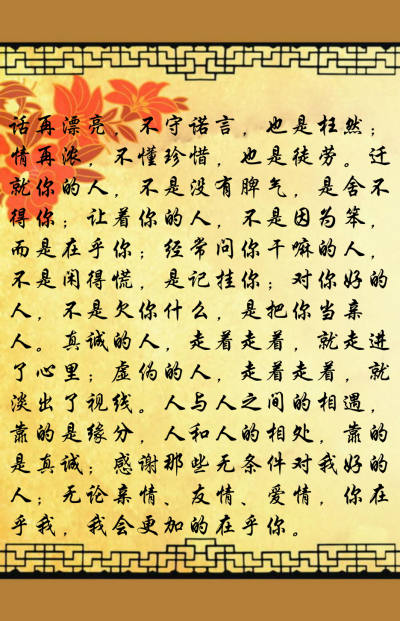 话再漂亮，不守诺言，也是枉然；
情再浓，不懂珍惜，也是徒劳。迁
就你的人，不是没有脾气，是舍不
得你；让着你的人，不是因为笨，
而是在乎你；经常问你干嘛的人，
不是闲得慌，是记挂你；对你好的
人，不是欠你什么，是把你当亲
人。真诚的人，走着走着，就走进
了心里；虚伪的人，走着走着，就
淡出了视线。人与人之间的相遇，
靠的是缘分，人和人的相处，靠的
是真诚；感谢那些无条件对我好的
人；无论亲情、友情、爱情，你在
乎我，我会更加的在乎你。